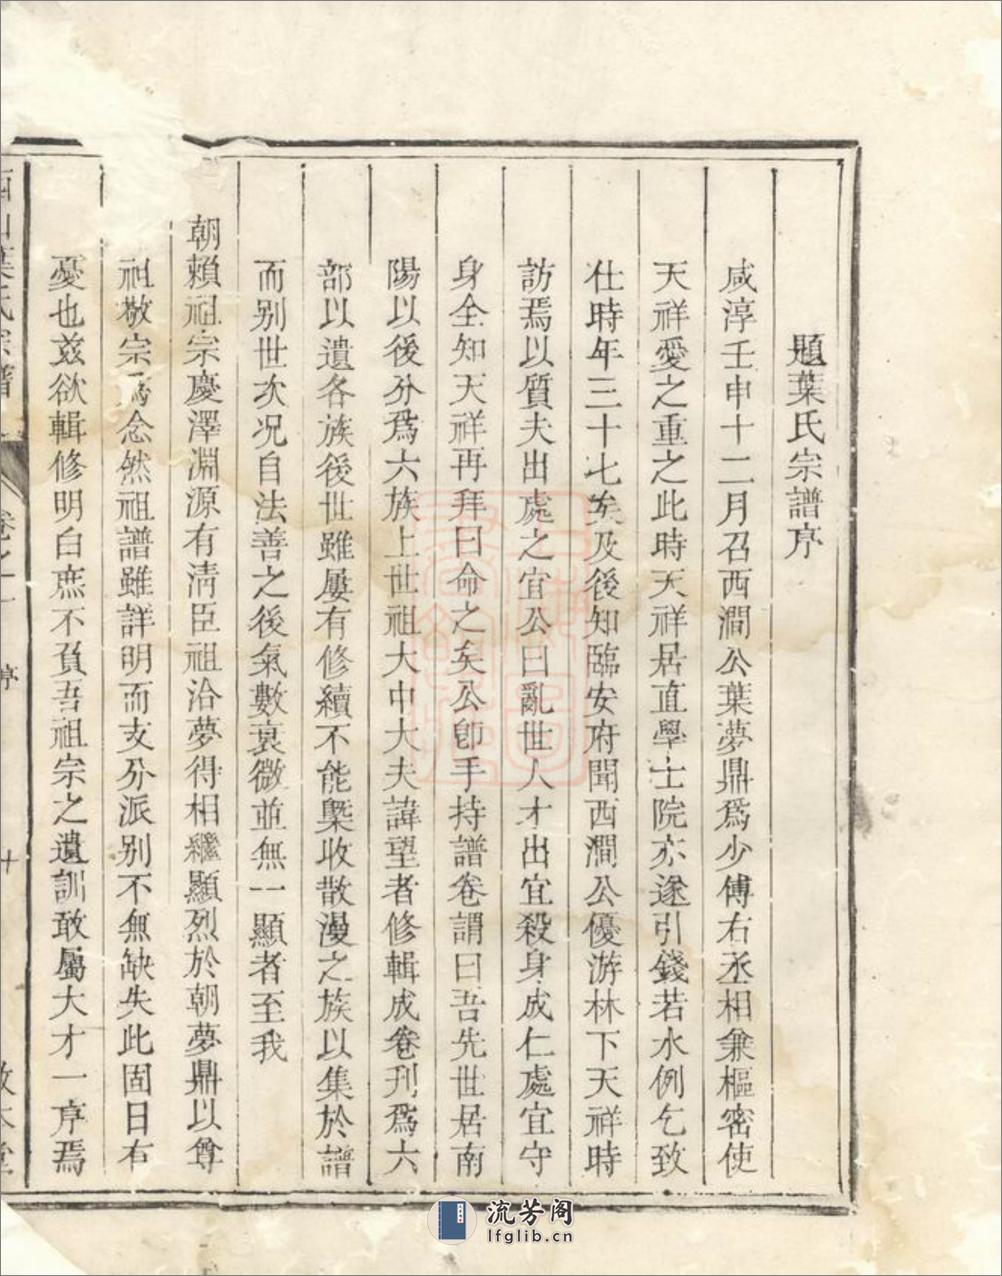 題葉氏宗譜序
咸淳壬申十二月召西澗公葉夢鼎爲少傅右丞相兼樞密使
天祥愛之重之此時天祥居直學士院亦遂引錢若水例乞致
仕時年三十七矣及後知臨安府聞西澗公優游林下天祥時
訪焉以質夫出處之宜公曰亂世人才出宜殺身成仁處宜守
身全知天祥再拜曰命之矣公卽手持譜卷謂曰吾先世居南
陽以後分爲六族上世祖大中大夫諱望者修輯成卷刋爲六
部以遺各族後世雖屢有修續不能槩收散漫之族以集於譜
而别世次况自法善之後氣數衰微並無一顯者至我
朝賴祖宗慶澤淵源有淸臣祖洽夢得相繼顯烈於朝夢鼎以尊
祖敬宗爲念然祖譜雖詳明而支分派别不無缺失此固日有
憂也兹欲輯修明白庶不負吾祖宗之遺訓敢屬大才一序焉
葉氏宗譜 卷之一 序 十
流芳阁
lfglib.cn